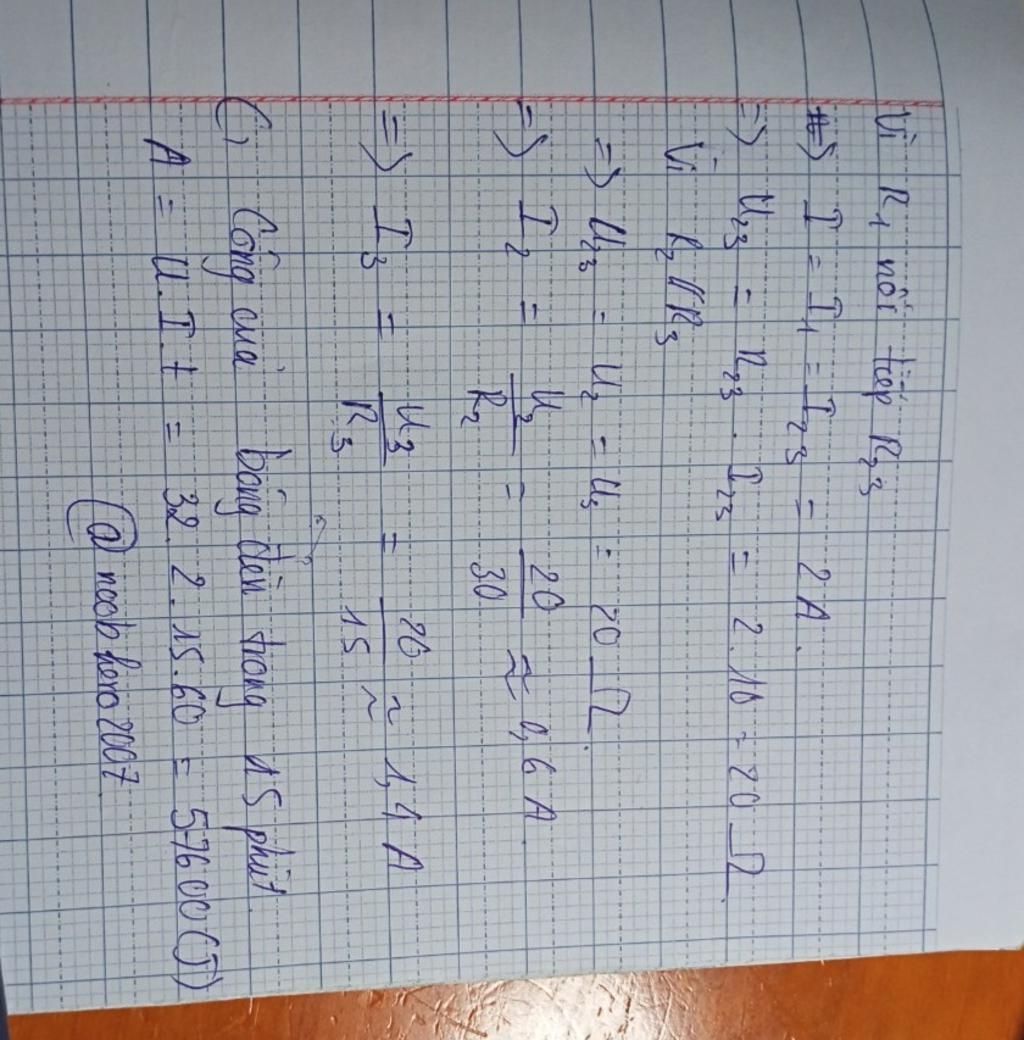 Vì R1 nối tiếp R23
=> I = I1 = I23 = 2 A.
=> U23 = R23 . I23 = 2.10 = 20 Ω
Vì R2 // R3
=> U23 = U2 = U3 = 20 Ω.
=> I2 = U2/R2 = 20/30 ≈ 0,6 A
=> I3 = U3/R3 = 20/15 ≈ 1,4 A
C) Công của bóng đèn trong 15 phút
A = U.I.t = 32.2.15.60 = 57600 (J)
@noobhero2007